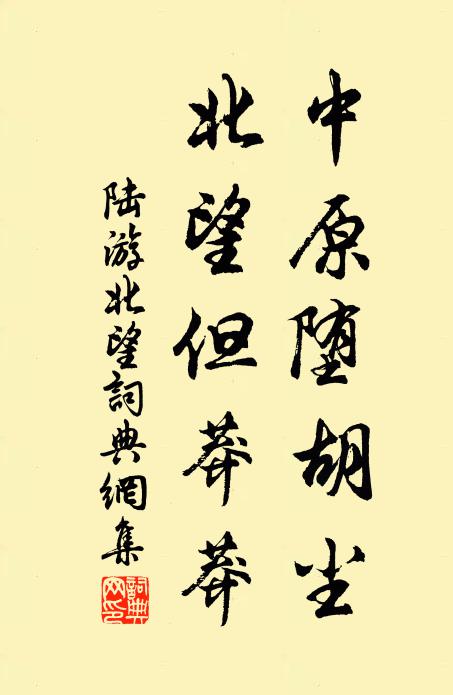 中原堕胡尘
北望但莽莽
陆游北望詞典網集
詞典网印